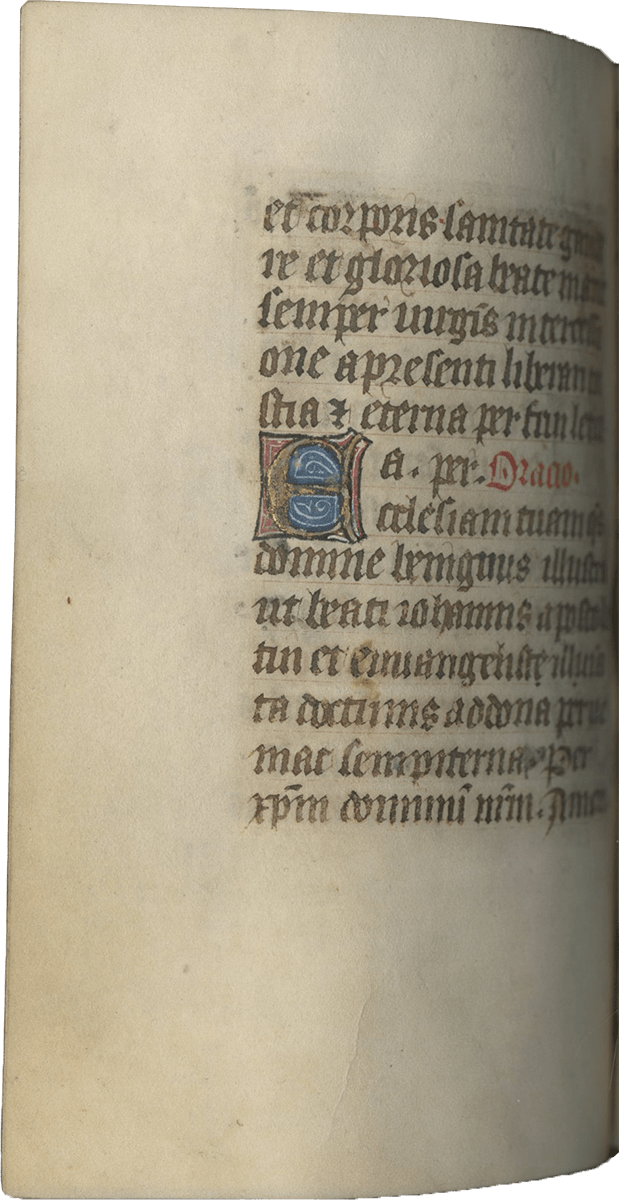 et corporis sanitate gaude
re et gloriosa beate marie
semper uirgīs intercessi
one a presenti liberari tri
stia ⁊ eterna per frui leti
a. per. Oracio.
Ecclesiam tuam q̄s
domine benignus illustra
ut beati iohannis aposto
tui et euuangeliste illumina
ta doctrinis ad dona perue
niat sempiterna. Per
xp̄m dominū nr̄m. Amen